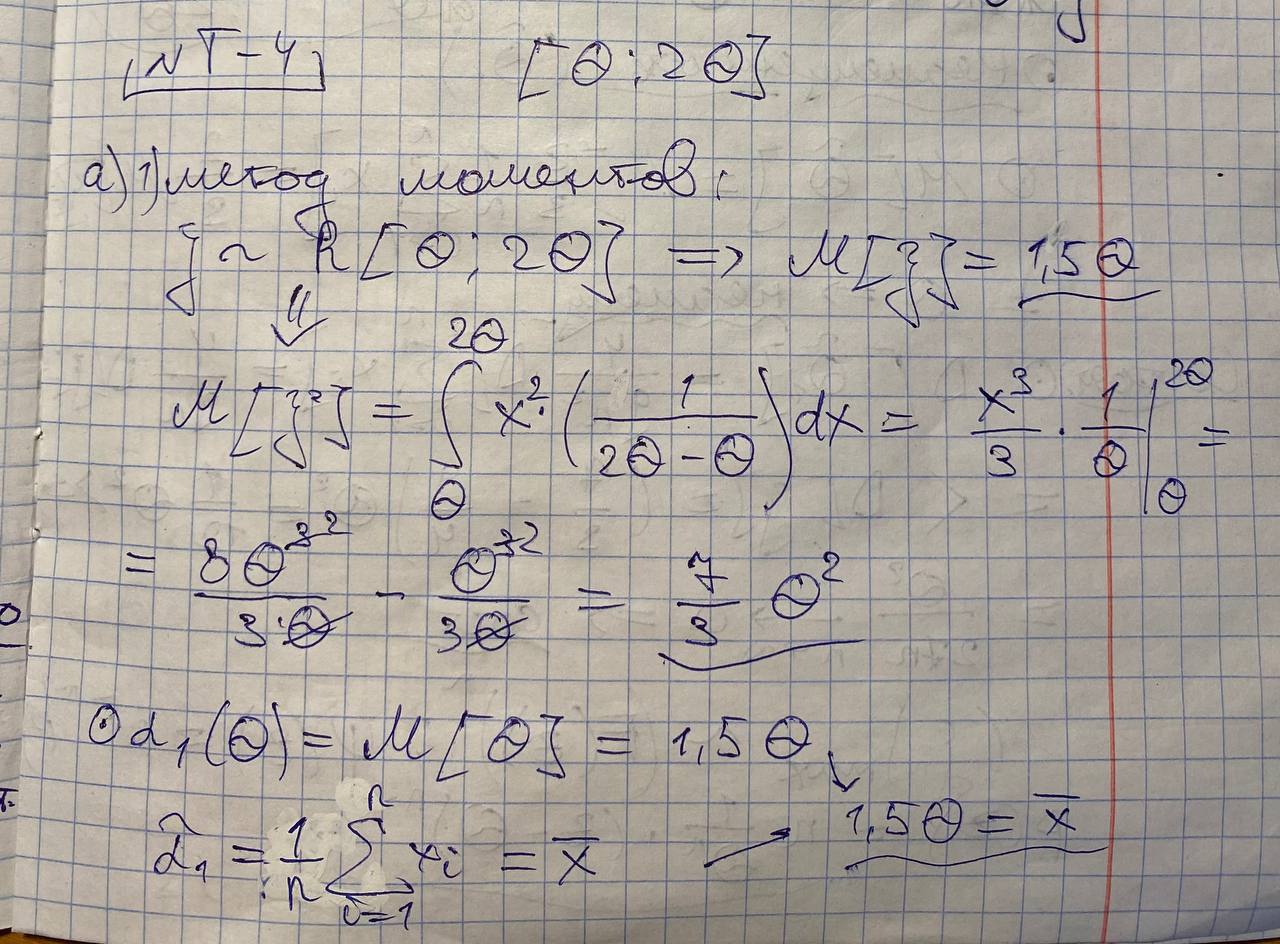 №T-4 [Θ; 2Θ]
a) 1) метод моментов:
ξ ~ R[Θ; 2Θ] => M[ξ] = 1,5Θ
⇓
M[ξ²] = ∫_Θ^{2Θ} x² · (1/(2Θ-Θ)) dx = x³/3 · 1/Θ |_Θ^{2Θ} =
= 8Θ³²/(3·Θ) - Θ³²/(3Θ) = 7/3 Θ²
⊙ α₁(Θ) = M[Θ] = 1,5Θ ↘
α̃₁ = 1/n Σ_{i=1}^n xᵢ = x̄ → 1,5Θ = x̄